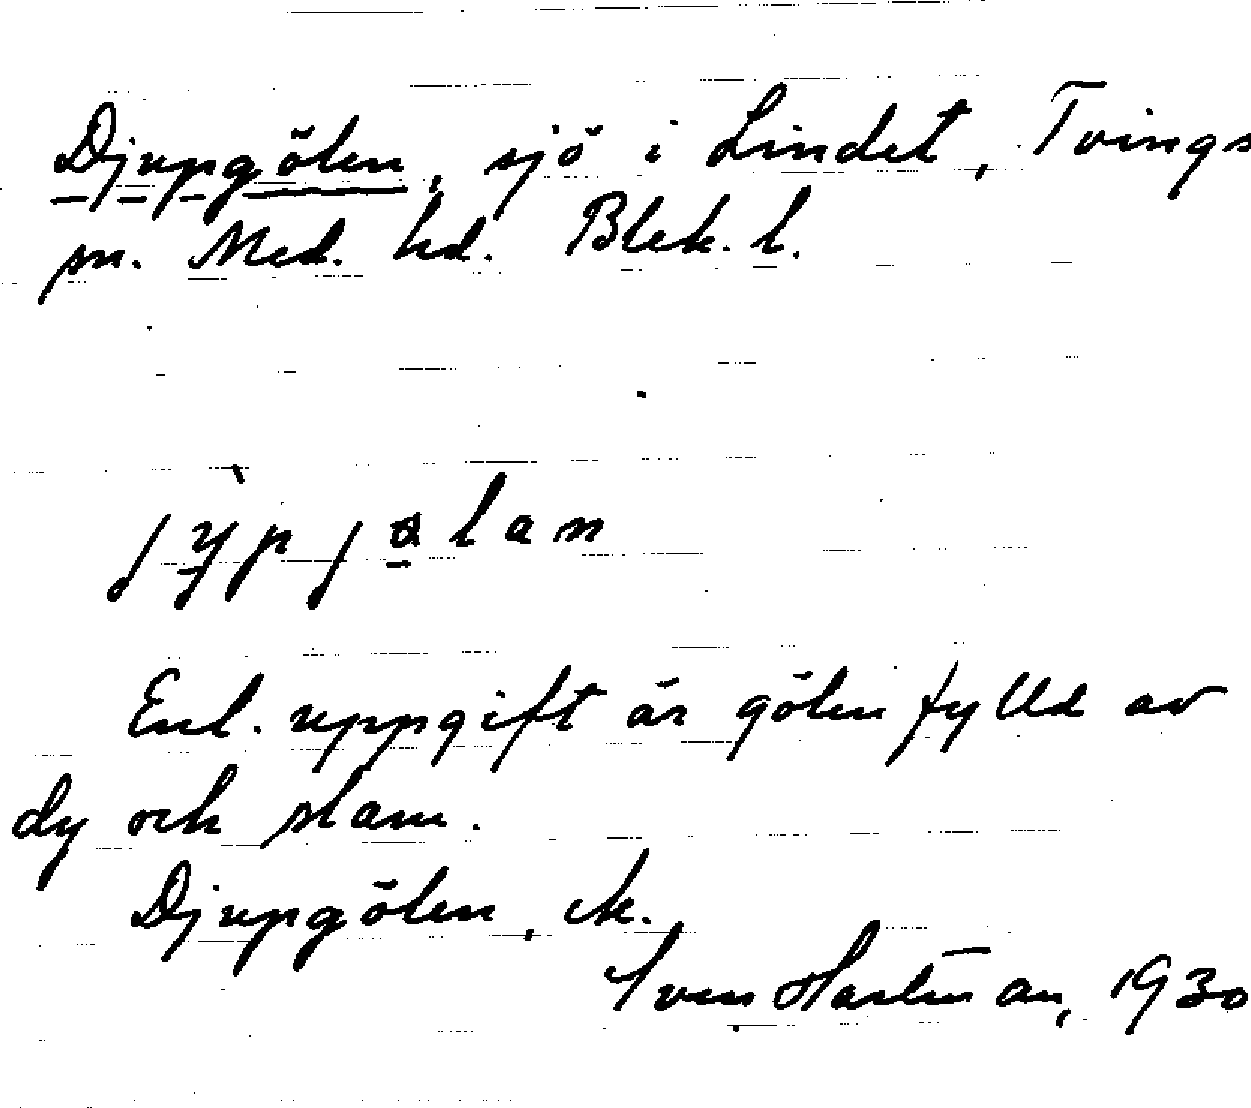 Djupgölen, sjö i Lindet, Tvings
sn. Med. hd. Blek. l.
Enl. uppgift är gölen fylld av
dy och slam.
Djupgölen, ek.
Sven Hartman, 1930